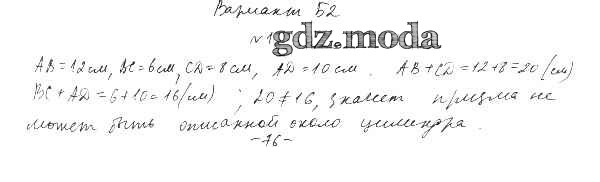 Вариант Б2
№1
gdz.moda
AB=12см, BC=6см, CD=8см, AD=10см. AB+CD=12+8=20(см)
BC+AD=6+10=16(см); 20≠16, значит призма не
может быть описанной около цилиндра.
-76-